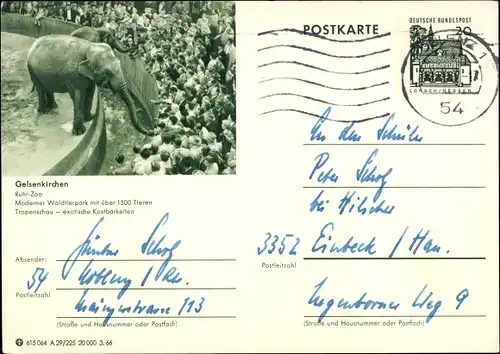 POSTKARTE
DEUTSCHE BUNDESPOST
20
LORSCH/HESSEN
54
Gelsenkirchen
Ruhr-Zoo
Moderner Waldtierpark mit über 1500 Tieren
Tropenschau – exotische Kostbarkeiten
Absender:
Günter Scholz
54 Koblenz / Rh.
Postleitzahl
Mainzerstrasse 113
(Straße und Hausnummer oder Postfach)
An den Schüler
Peter Scholz
bei Hilscher
3352 Einbeck / Han.
Postleitzahl
Negenborner Weg 9
(Straße und Hausnummer oder Postfach)
615 064 A 29/225 20 000 3. 66